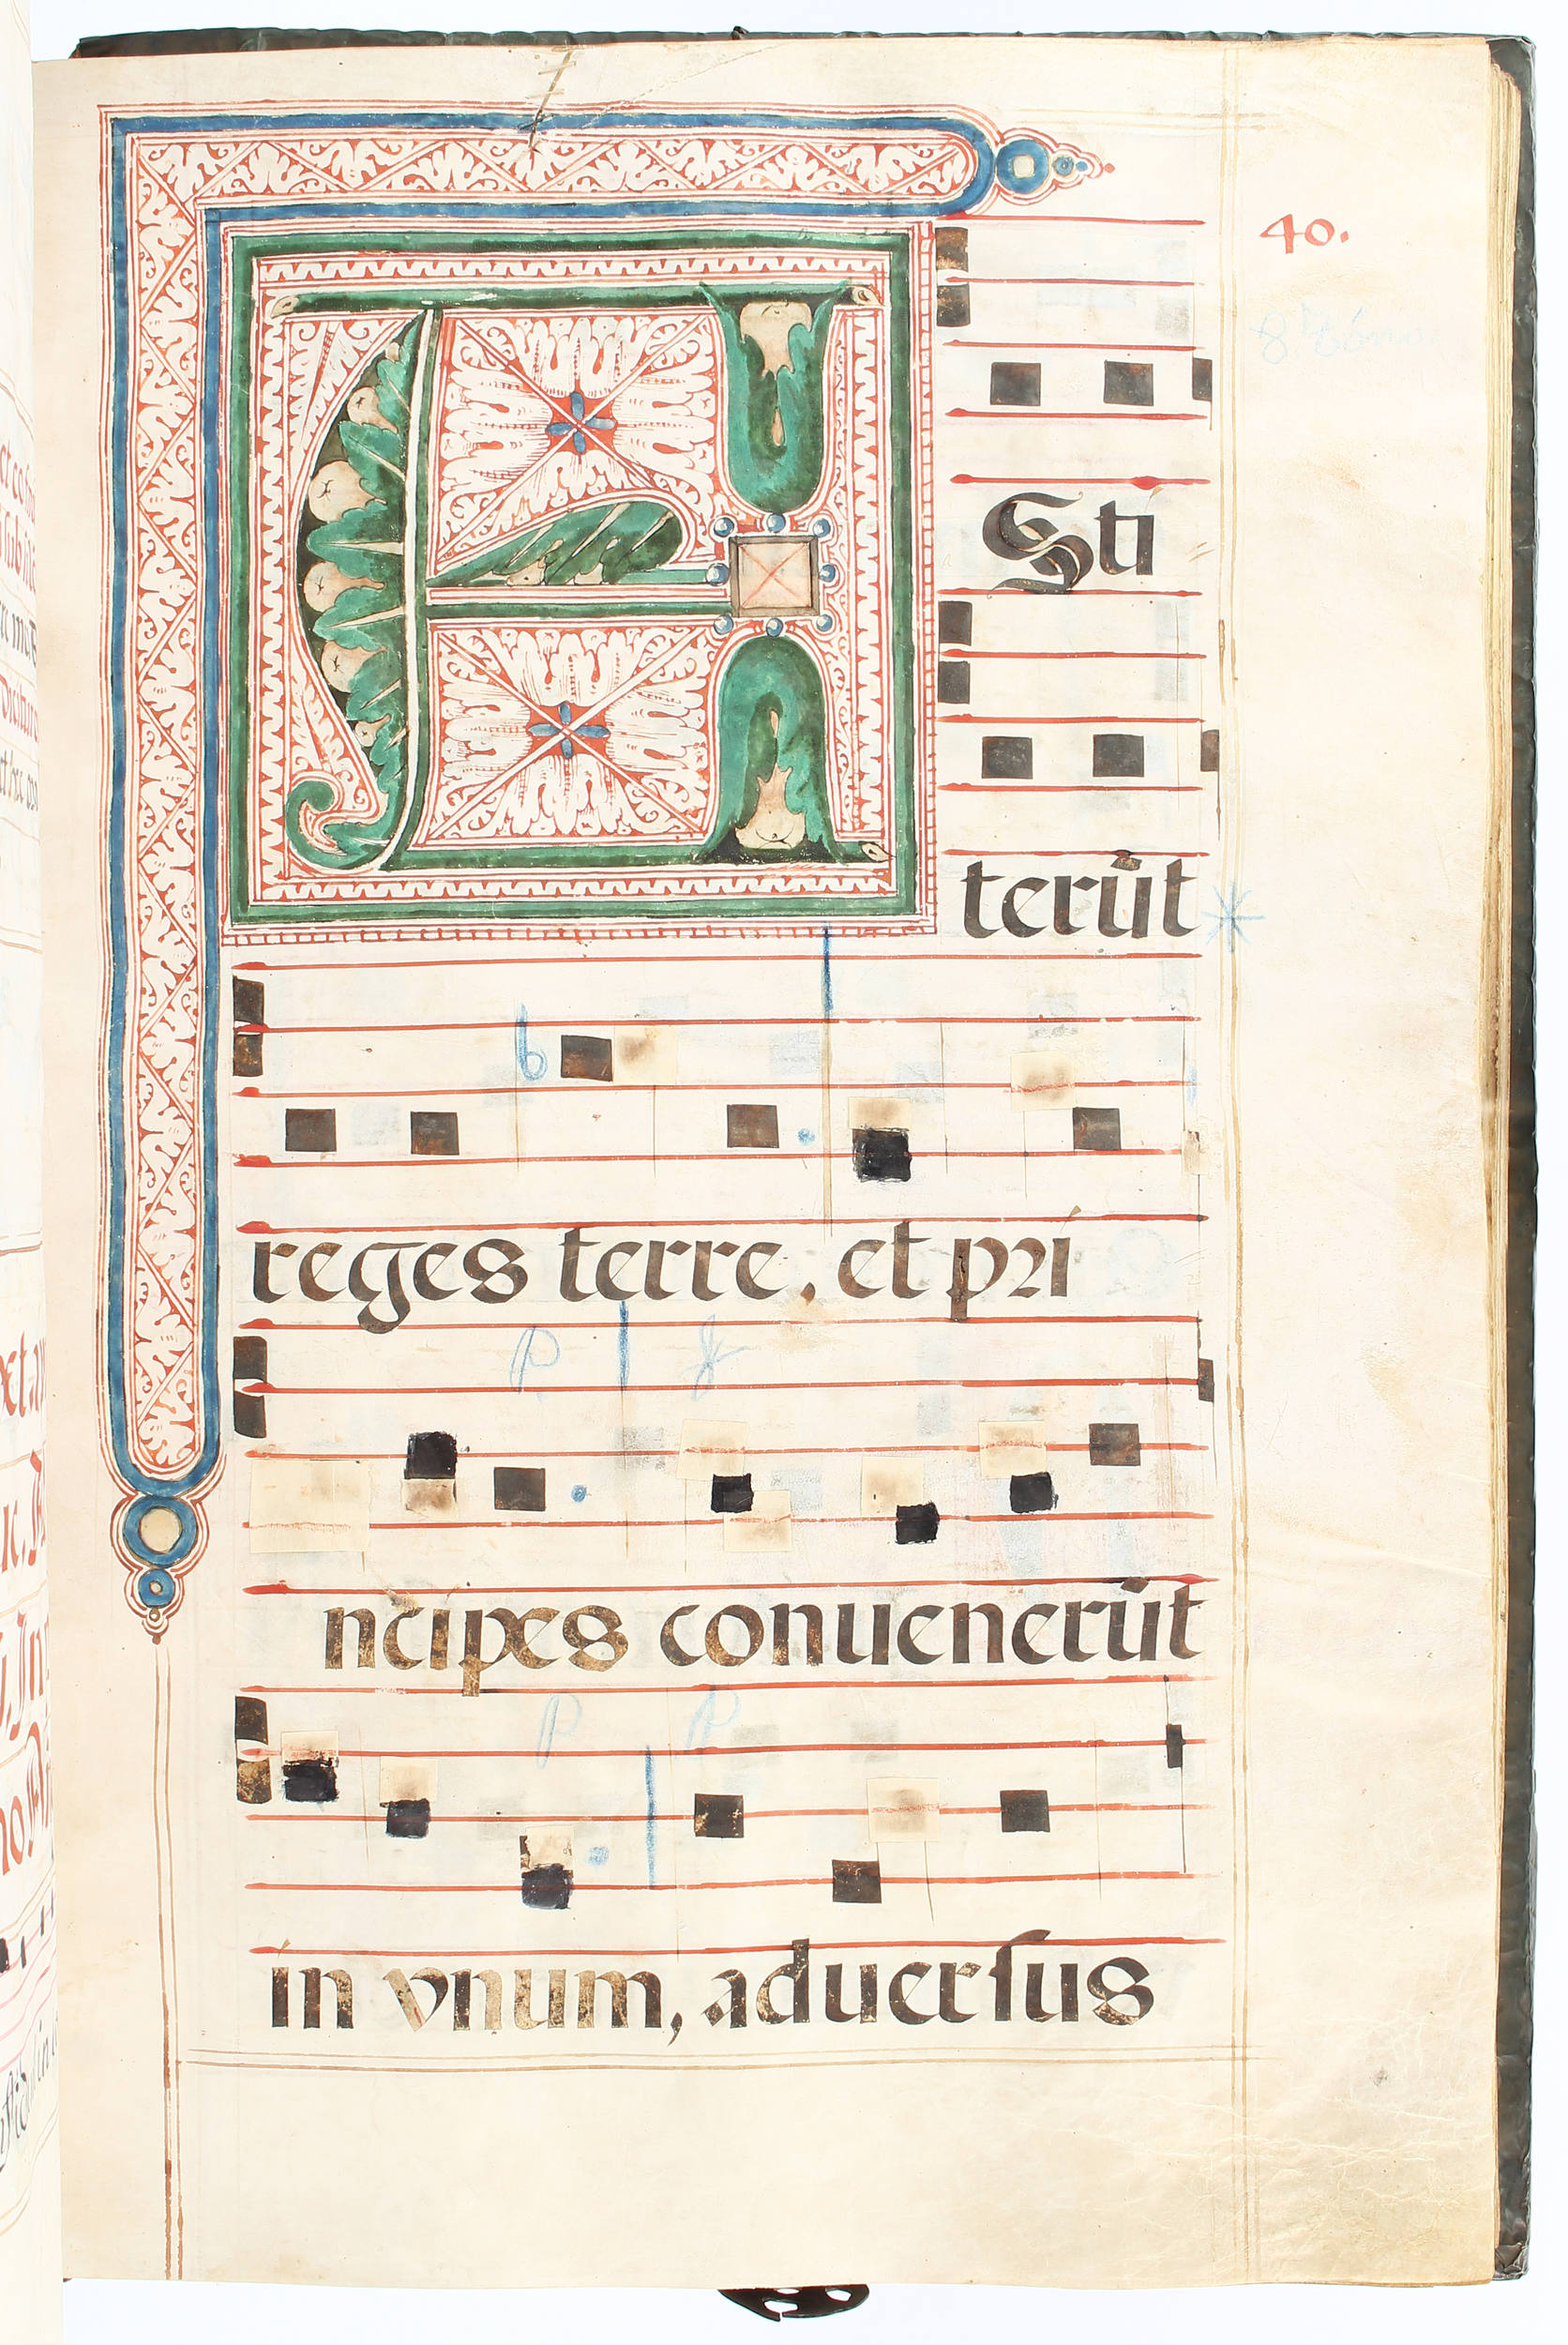 40.
ASti
terūt
reges terre. et pri
ncipes conuenerūt
in vnum, aduersus